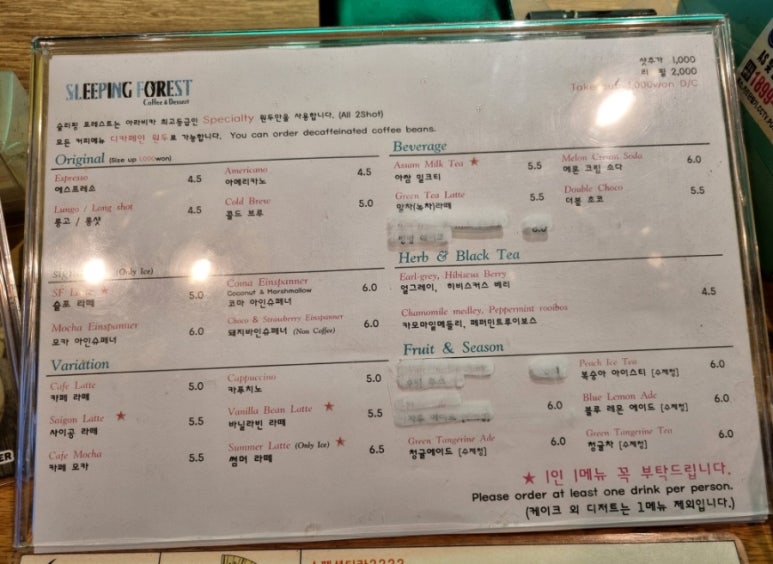 SLEEPING FOREST
Coffee & Dessert
샷추가 1,000
리 필 2,000
슬리핑 포레스트는 아라비카 최고등급인 Specialty 원두만을 사용합니다. (All 2Shot)
모든 커피메뉴 디카페인 원두로 가능합니다. You can order decaffeinated coffee beans.
Original (Size up 1,000won)
Espresso 4.5
에스프레소
Americano 4.5
아메리카노
Lungo / Long shot 4.5
룽고 / 롱샷
Cold Brew 5.0
콜드 브루
(Only Ice)
SF ★ 5.0
슬포 라떼
Coma Einspanner 6.0
Coconut & Marshmallow
코마 아인슈페너
Mocha Einspanner 6.0
모카 아인슈페너
Choco & Strawberry Einspanner 6.0
돼지바인슈페너 (Non Coffee)
Variation
Cafe Latte 5.0
카페 라떼
Cappuccino 5.0
카푸치노
Saigon Latte ★ 5.5
사이공 라떼
Vanilla Bean Latte ★ 5.5
바닐라빈 라떼
Cafe Mocha 5.5
카페 모카
Summer Latte (Only Ice) ★ 6.5
썸머 라떼
Beverage
Assam Milk Tea ★ 5.5
아쌈 밀크티
Melon Cream Soda 6.0
메론 크림 소다
Green Tea Latte 5.5
말차(녹차)라떼
Double Choco 5.5
더블 초코
6.0
Herb & Black Tea
Earl-grey, Hibiscus Berry
얼그레이, 히비스커스 베리
4.5
Chamomile medley, Peppermint rooibos
카모마일메들리, 페퍼민트루이보스
Fruit & Season
Peach Ice Tea 6.0
복숭아 아이스티 [수제청]
6.0
Blue Lemon Ade 6.0
블루 레몬 에이드 [수제청]
Green Tangerine Ade 6.0
청귤에이드 [수제청]
Green Tangerine Tea 6.0
청귤차 [수제청]
★ 1인 1메뉴 꼭 부탁드립니다.
Please order at least one drink per person.
(케이크 외 디저트는 1메뉴 제외입니다.)